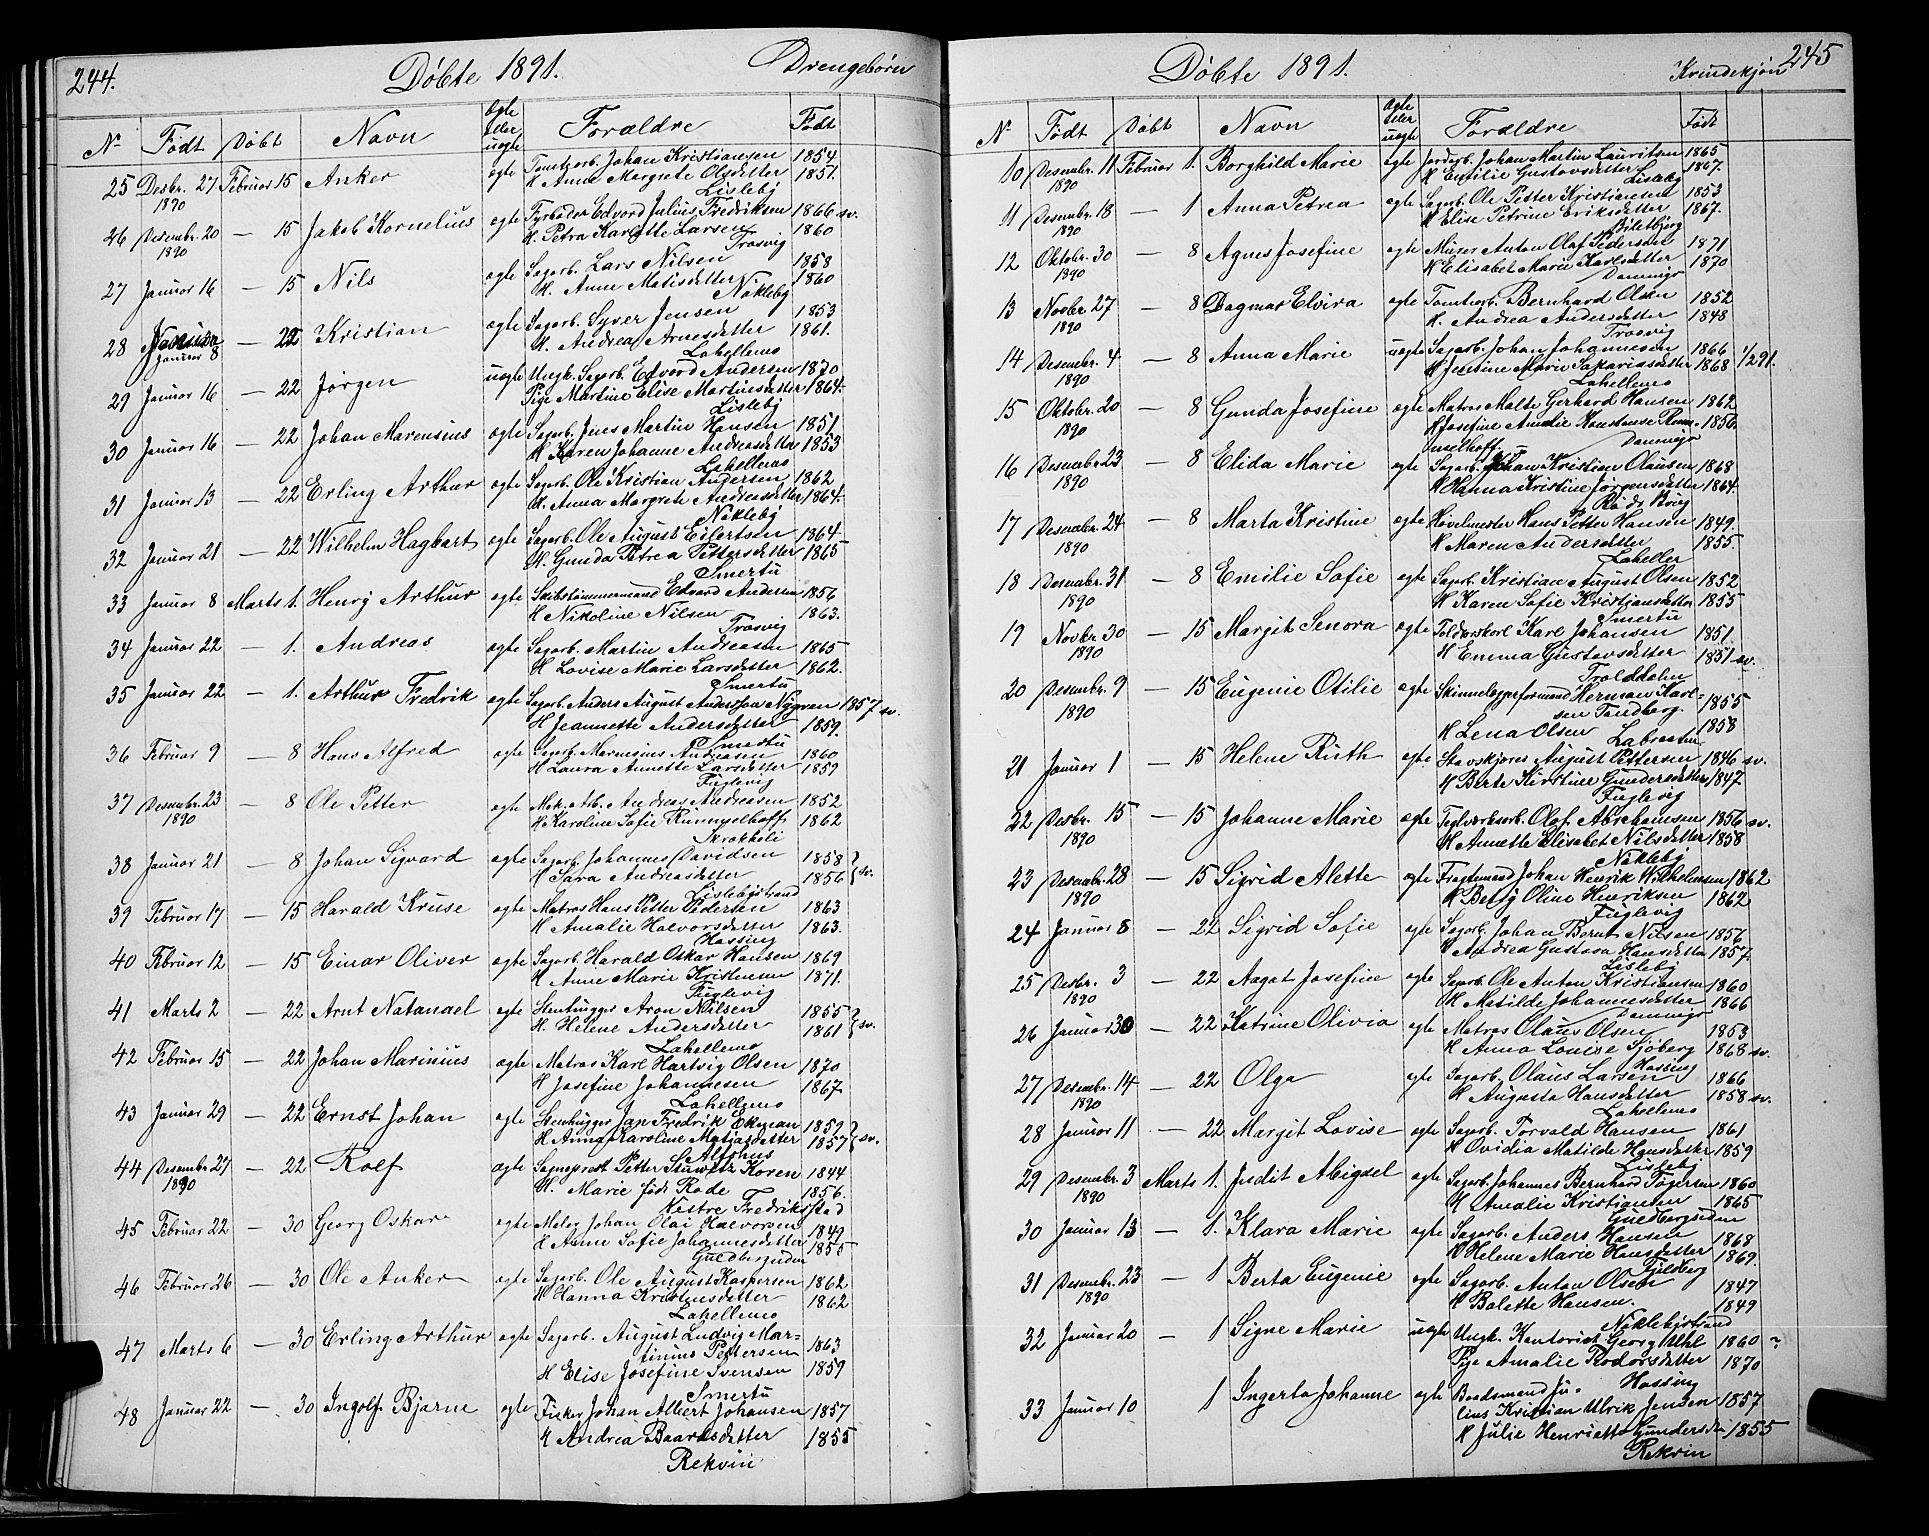 244.
Døbte 1891.
Drengebørn
Nº Født Døbt Navn Ægte eller uægte Forældre Født
25 Desbr. 27 1890 Februar 15 Anker ægte Tomtearb. Johan Kristiansen 1854
H Anne Margrete Olsdatter 1851.
Lisleby
26 Desembr. 20 1890 — 15 Jakob Kornelius ægte Fyrbøder Edvard Julius Fredriksen 1866 sv.
H. Petra Karlotte Larsen 1860
Trosvig
27 Januar 16 — 15 Nils ægte Sagarb. Lars Nilsen 1858
H. Anne Matisdatter 1860
Nøkleby
28 Januar 8 — 22 Kristian ægte Sagarb. Syver Jensen 1853
H. Andrea Arnesdatter 1861.
Lahellemo
29 Januar 16 — 22 Jørgen uægte Ungk. Sagarb. Edvard Andersen 1870
Pige Martine Elise Martinsdatter 1864.
Lisleby
30 Januar 16 — 22 Johan Marensius ægte Sagarb. Jens Martin Hansen 1851.
H Karen Johanne Andreasdatter 1853
Lahellemo
31 Januar 13 — 22 Erling Arthur ægte Sagarb. Ole Kristian Andersen 1862
H. Anna Margrete Andreasdatter 1864.
Nøkleby
32 Januar 21 — 22 Wilhelm Hagbart ægte Sagarb. Ole August Eilertsen 1864
H. Gunda Petrea Pettersdatter 1865
Smertu
33 Januar 8 Marts 1. Henry Arthur ægte Skibstømmermand Edvard Andersen 1856
H Nikoline Nilsen 1863.
Trosvig
34 Januar 22 — 1. Andreas ægte Sagarb. Martin Andreasen 1865
H Lovise Marie Larsdatter 1862.
Smertu
35 Januar 22 — 1. Arthur Fredrik ægte Sagarb. Anders August Andersson Nygren 1857 sv.
H Jeannette Andersdatter 1859.
Smertu
36 Februar 9 — 8 Hans Alfred ægte Sagarb. Marensius Andreasen 1860
H Laura Annette Larsdatter 1859
Fuglevig
37 Desembr. 23 1890 — 8 Ole Petter ægte Mek. Arb. Andreas Andreasen 1852
H. Karoline Sofie Rummelhoff 1862
Skrokkeli
38 Januar 21 — 8 Johan Sigvard ægte Sagarb. Johannes Davidsen 1858
H Sara Andreasdatter 1856 } sv.
Lislebystrand
39 Februar 17 — 15 Harald Kruse ægte Matros Hans Petter Pedersen 1863
H Amalie Halvorsdatter 1863.
Hassing
40 Februar 12 — 15 Einar Oliver ægte Sagarb. Harald Oskar Hansen 1869
H Anne Marie Kristensen 1871.
Fuglevig
41 Marts 2 — 22 Arnt Natanael ægte Stenhugger Aron Nilsen 1855
H. Helene Andersdatter 1861 } sv.
Lahellemo
42 Februar 15 — 22 Johan Marinius ægte Matros Karl Hartvig Olsen 1870
H Josefine Johannesen 1867
Lahellemo
43 Januar 29 — 22 Ernst Johan ægte Stenhugger Jan Fredrik Ekman 1859
H Anna Karoline Matiasdatter 1857 } sv.
44 Desembr. 27 1890 — 22 Rolf ægte Sogneprest Petter Stuwitz Koren 1844
H. Marie født Rode 1856.
Vestre Fredrikstad
45 Februar 22 — 30 Georg Oskar ægte Maler Johan Olai Halvorsen 1849
H Anne Sofie Johannesdatter 1855
46 Februar 26 — 30 Ole Anker ægte Sagarb. Ole August Kaspersen 1862
H Hanna Kristensdatter 1862
Lahellemo
47 Marts 6 — 30 Erling Arthur ægte Sagarb. August Ludvig Mar-
tinius Pettersen 1863
H Elise Josefine Svensen 1859
Smertu
48 Januar 22 — 30 Ingolf Bjarne ægte Fisker Johan Albert Johansen 1857
H Andrea Baardsdatter 1855
Rekvin
245
Døbte 1891.
Kvindekjøn
Nº Født Døbt Navn Ægte eller uægte Forældre Født
10 Desembr. 11 1890 Februar 1. Borghild Marie ægte Jordarb. Johan Martin Lauritsen 1865
H Emilie Gustavsdatter 1867.
Lisleby
11 Desembr. 18 1890 — 1 Anna Petrea ægte Sagarb. Ole Petter Kristiansen 1853
H Elise Petrine Eriksdatter 1867.
12 Oktobr. 30 1890 — 8 Agnes Josefine ægte Murer Anton Olaf Pedersen 1871
H Elisabet Marie Karlsdatter 1870
Dammyr
13 Novbr. 27 1890 — 8 Dagmar Elvira ægte Tomtearb. Bernhard Olsen 1852
H. Andrea Andersdatter 1848
Trosvig
14 Desembr. 4 1890 — 8 Anna Marie uægte Sagarb. Johan Johannesen 1866
H Jensine Marie Sakariasdatter 1868 1/2 91.
Lahellemo
15 Oktobr. 20 1890 — 8 Gunda Josefine ægte Matros Malte Gerhard Hansen 1862
H Josefine Amalie Konstanse Rum- 1856.
melhoff Dammyr
16 Desembr. 23 1890 — 8 Elida Marie ægte Sagarb. Johan Kristian Olausen 1868
H Hanna Kristine Jørgensdatter 1864.
17 Desembr. 24 1890 — 8 Marta Kristine ægte Høvelmester Hans Petter Hansen 1849.
H Maren Andersdatter 1855.
Laheller
18 Desembr. 31 1890 — 8 Emilie Sofie ægte Sagarb. Kristian August Olsen 1852
H Karen Sofie Kristiansdatter 1855
Smertu
19 Novbr. 30 1890 — 15 Margit Senora ægte Toldoskarl Karl Johansen 1851.
H Emma Gustavsdatter 1851 sv.
Trolddalen
20 Desembr. 9 1890 — 15 Eugenie Otilie ægte Skinnelæggerformand Herman Karl-
sen Tandberg. 1855
H Lena Olsen 1858
Labraaten
21 Januar 1 — 15 Helene Ruth ægte August Pettersen 1846 sv.
H Berte Kirstine Gundersdatter 1847
Fuglevig
22 Desbr. 15 1890 — 15 Johanne Marie ægte Teglværksarb. Olof Abrahamsen 1856 sv.
H Annette Elisabet Nilsdatter 1858
Nøkleby
23 Desembr. 28 1890 — 15 Sigrid Alette ægte Fragtemand Johan Henrik Wilhelmsen 1862
H Betsy Oline Henriksen 1862
Fuglevig
24 Januar 8 — 22 Sigrid Sofie ægte Sagarb. Johan Bernt Nilsen 1856
H Andrea Gustava Hansdatter 1857
Lisleby
25 Desbr. 3 1890 — 22 Aagot Josefine ægte Sagarb. Ole Anton Kristiansen 1860
H Matilde Johannesdatter 1866
Dammyr
26 Januar 30 — 22 Katrine Olivia ægte Matros Olaus Olsen 1853
H Anna Louise Sjøberg 1868 sv.
Hassing
27 Desembr. 14 1890 — 22 Olga ægte Sagarb. Olaus Larsen 1866
H Augusta Hansdatter 1858 sv.
Lahellemo
28 Januar 11 — 22 Margit Lovise ægte Sagarb. Torvald Hansen 1861
H Ovidia Matilde Hansdatter 1859
Lisleby
29 Desembr. 3 1890 Marts 1. Judit Abigael ægte Sagarb. Johannes Bernhard Tøgersen 1860
H Amalie Kristiansen 1865
Guldbergsiden
30 Januar 13 — 1. Klara Marie ægte Sagarb. Anders Hansen 1868
H Helene Marie Hansdatter 1869.
31 Desembr. 23 1890 — 1 Berta Eugenie ægte Sagarb. Anton Olsen 1847
H Bolette Hansen. 1849
Nøklebystrand
32 Januar 20 — 1 Signe Marie uægte Ungk. Kontorist Georg Uhl 1860 ?
Pige Amalie Todorsdatter 1870
Hassing
33 Januar 10 1 Ingerta Johanne ægte Baadsmand Ju-
lius Kristian Ulrik Jensen 1857
H Julie Henriette Gundersdtr 1855
Rekvin